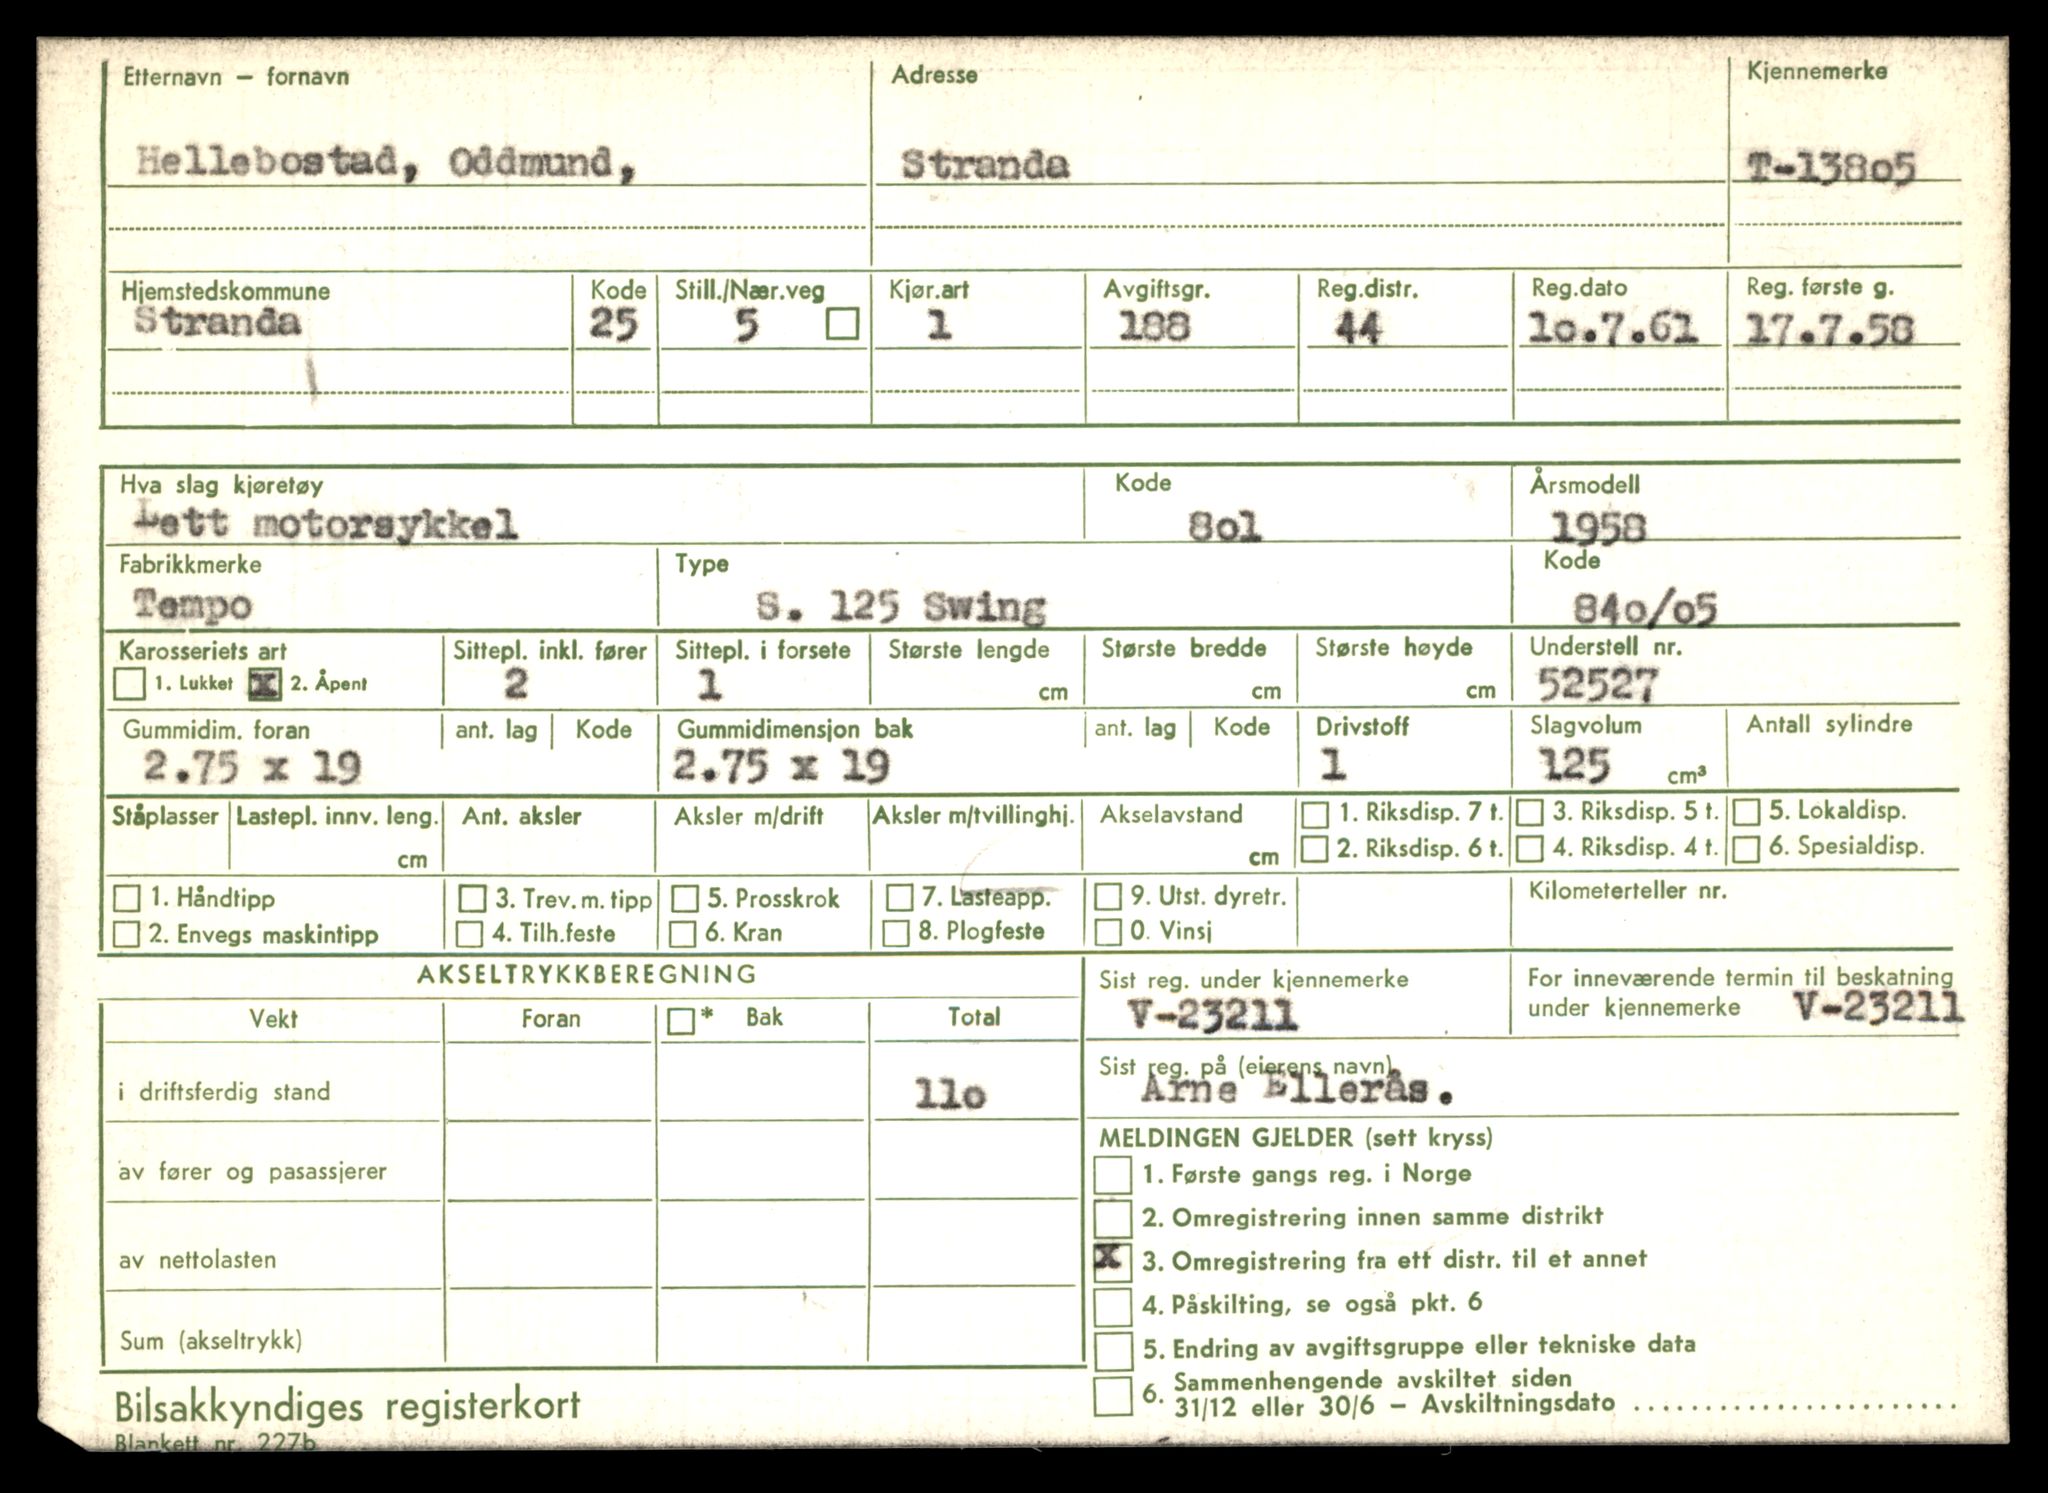 Etternavn – fornavn Adresse Kjennemerke
Hellebostad, Oddmund, Stranda T-138o5
Hjemstedskommune Kode Still./Nær.veg Kjør.art Avgiftsgr. Reg.distr. Reg.dato Reg. første g.
Stranda 25 5 1 188 44 1o.7.61 17.7.58
Hva slag kjøretøy Kode Årsmodell
Lett motorsykkel 8o1 1958
Fabrikkmerke Type Kode
Tempo S. 125 Swing 84o/o5
Karosseriets art Sittepl. inkl. fører Sittepl. i forsete Største lengde Største bredde Største høyde Understell nr.
1. Lukket x 2. Åpent 2 1 cm cm cm 52527
Gummidim. foran ant. lag Kode Gummidimensjon bak ant. lag Kode Drivstoff Slagvolum Antall sylindre
2.75 x 19 2.75 x 19 1 125 cm³
Ståplasser Lastepl. innv. leng. Ant. aksler Aksler m/drift Aksler m/tvillinghj. Akselavstand 1. Riksdisp. 7 t. 3. Riksdisp. 5 t. 5. Lokaldisp.
cm cm 2. Riksdisp. 6 t. 4. Riksdisp. 4 t. 6. Spesialdisp.
1. Håndtipp 3. Trev. m. tipp 5. Prosskrok 7. Lasteapp. 9. Utst. dyretr. Kilometerteller nr.
2. Envegs maskintipp 4. Tilh.feste 6. Kran 8. Plogfeste 0. Vinsj
AKSELTRYKKBEREGNING
Vekt Foran * Bak Total
i driftsferdig stand 11o
av fører og pasassjerer
av nettolasten
Sum (akseltrykk)
Sist reg. under kjennemerke
V-23211
For inneværende termin til beskatning
under kjennemerke V-23211
Sist reg. på (eierens navn)
Arne Ellerås.
MELDINGEN GJELDER (sett kryss)
1. Første gangs reg. i Norge
2. Omregistrering innen samme distrikt
x 3. Omregistrering fra ett distr. til et annet
4. Påskilting, se også pkt. 6
5. Endring av avgiftsgruppe eller tekniske data
6. Sammenhengende avskiltet siden
31/12 eller 30/6 – Avskiltningsdato ......................
Bilsakkyndiges registerkort
Blankett nr. 227b